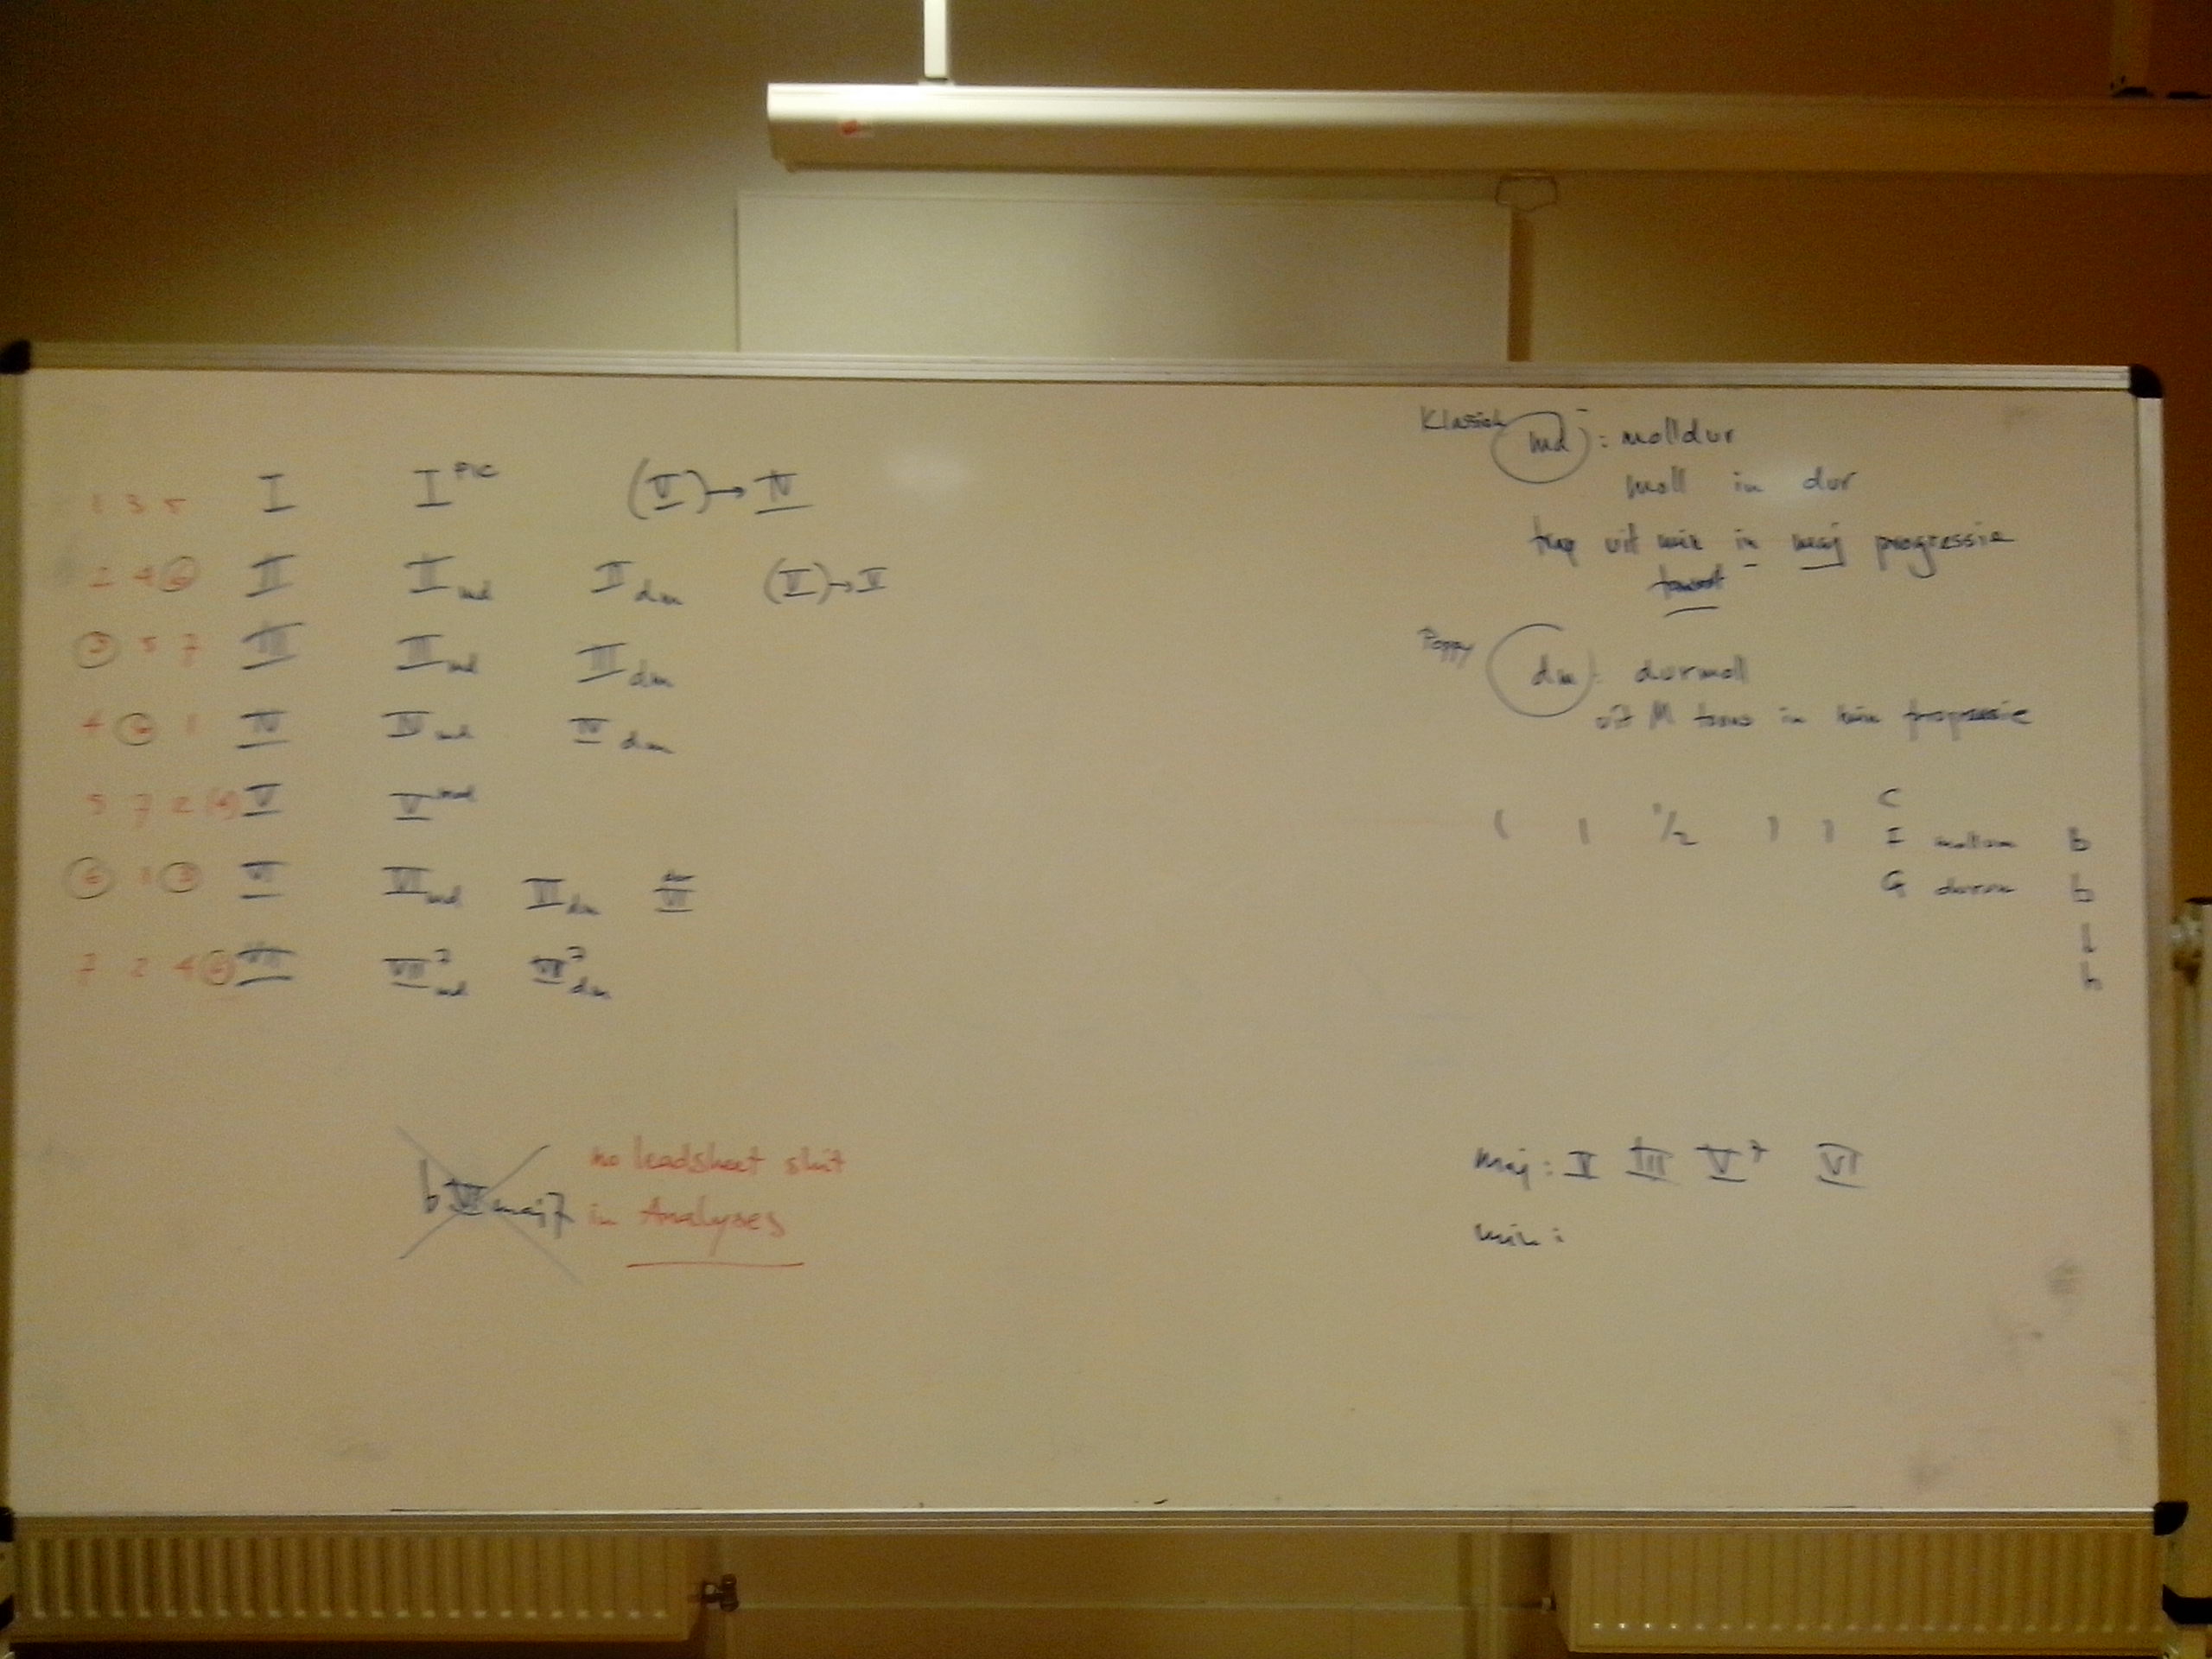 1 3 5 I I PIC (V)→IV
2 4 6 II II md II dm (V)→V
3 5 7 III III md III dm
4 6 1 IV IV md IV dm
5 7 2 (4) V V mol
6 1 3 VI VI md VI dm VI
7 2 4 6 VII VII7 md VII7 dm
b VI maj7
no leadsheet shit
in Analyses
Klassiek md : molldur
moll in dur
trap uit min in maj progressie
toonsrt
Poppy dm : durmoll
uit M toons in min progressie
1 1 1/2 1 1
C
I mollum b
G durum b
b
h
maj: II III V7 VI
min: